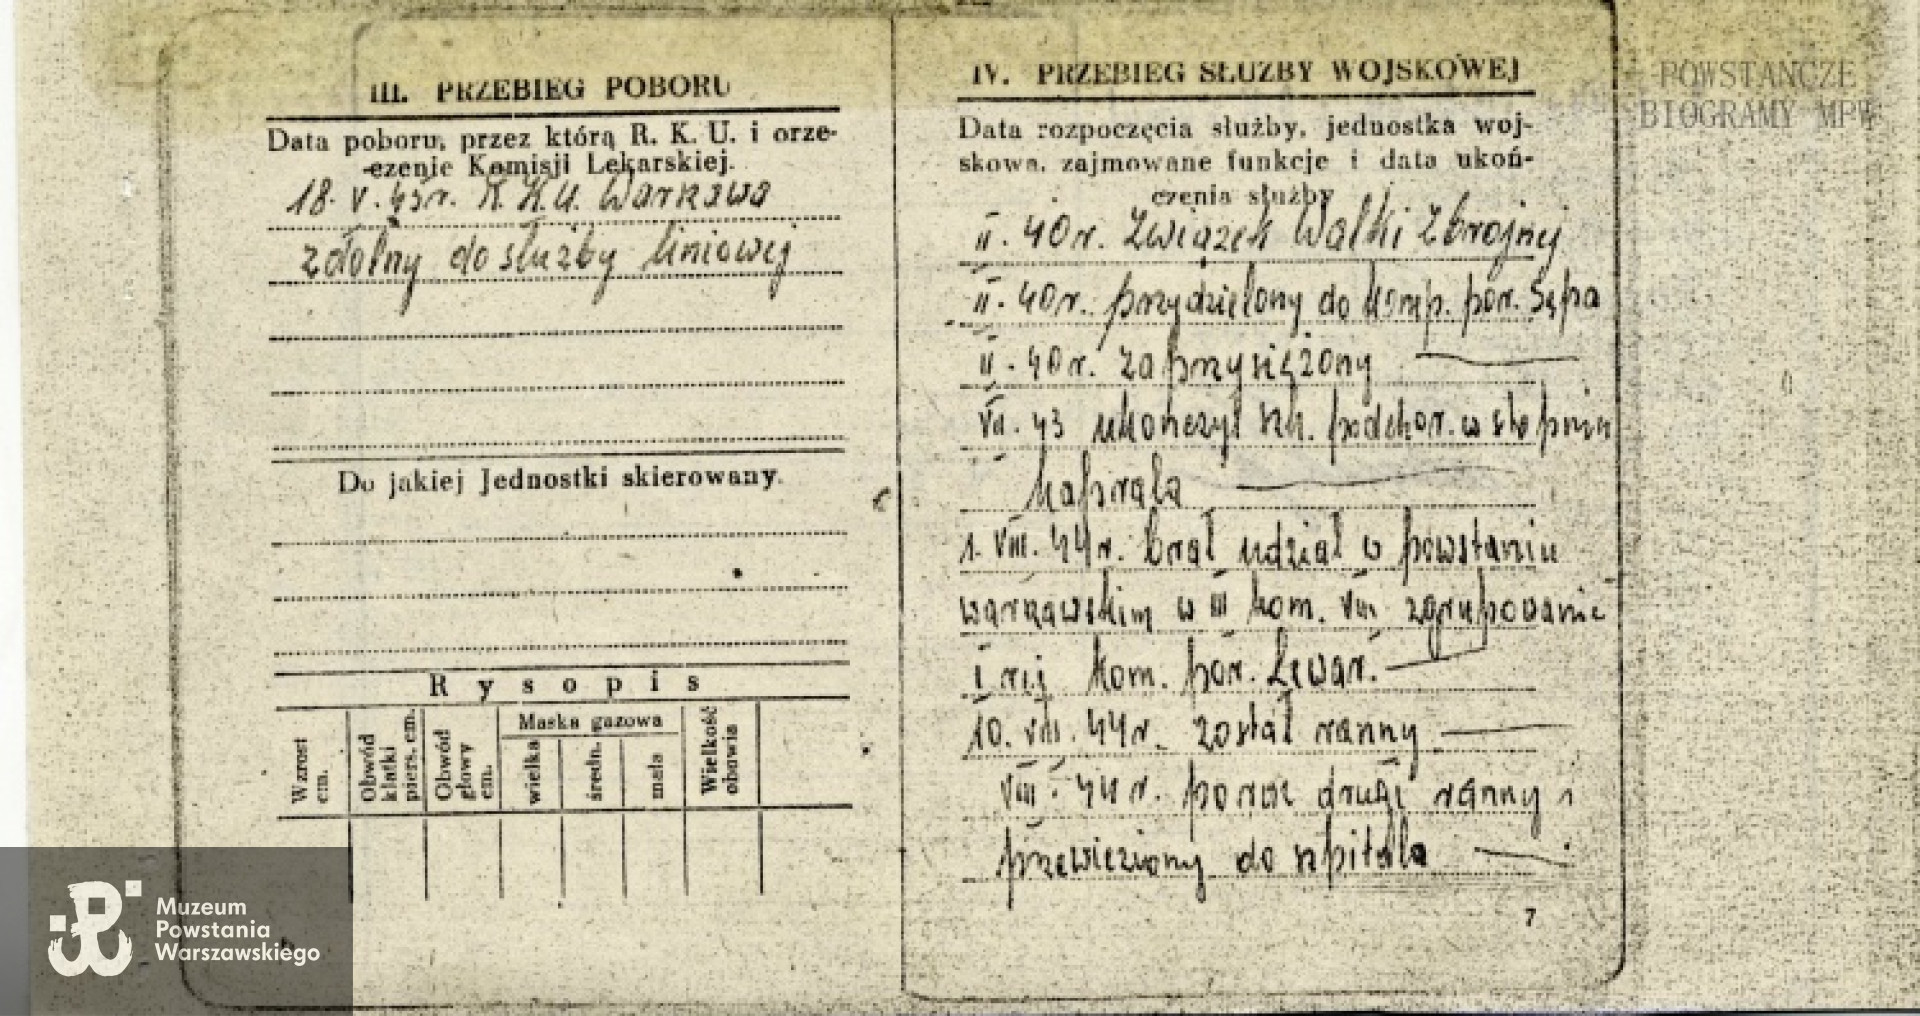 III. PRZEBIEG POBORU
Data poboru, przez którą R. K. U. i orze-
czenie Komisji Lekarskiej.
18. V. 45r. R.K.U. Warszawa
zdolny do służby liniowej
Do jakiej Jednostki skierowany.
Rysopis
Wzrost cm.
Obwód klatki piers. cm.
Obwód głowy cm.
Maska gazowa
wielka
średn.
mała
Wielkość obuwia
IV. PRZEBIEG SŁUŻBY WOJSKOWEJ
Data rozpoczęcia służby, jednostka woj-
skowa, zajmowane funkcje i data ukoń-
czenia służby
II. 40r. Związek Walki Zbrojnej
II. 40r. przydzielony do komp. por. Sępa
II. 40r. zaprzysiężony
VII. 43 ukończył szk. podchor. w stopniu
kaprala
1. VIII. 44r. brał udział w powstaniu
warszawskim w III kom. VIII zgrupowanie
I rej kom. por. Lewar.
10. VIII. 44r. został ranny
VIII. 44r. po raz drugi ranny i
przewieziony do szpitala
7
POWSTAŃCZE
BIOGRAMY MPW
Muzeum
Powstania
Warszawskiego